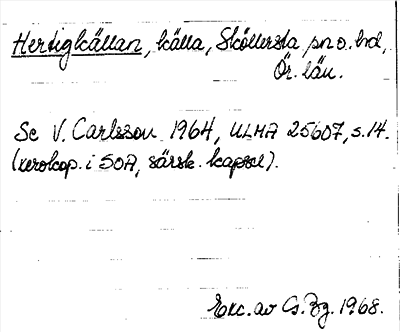 Hertigkällan, källa, Sköllersta sn o. hd,
Ör. län.
Se V. Carlsson 1964, ULMA 25607, s. 14.
(xerokop. i SOA, särsk. kapsel).
Exc. av Cs. Bg. 1968.